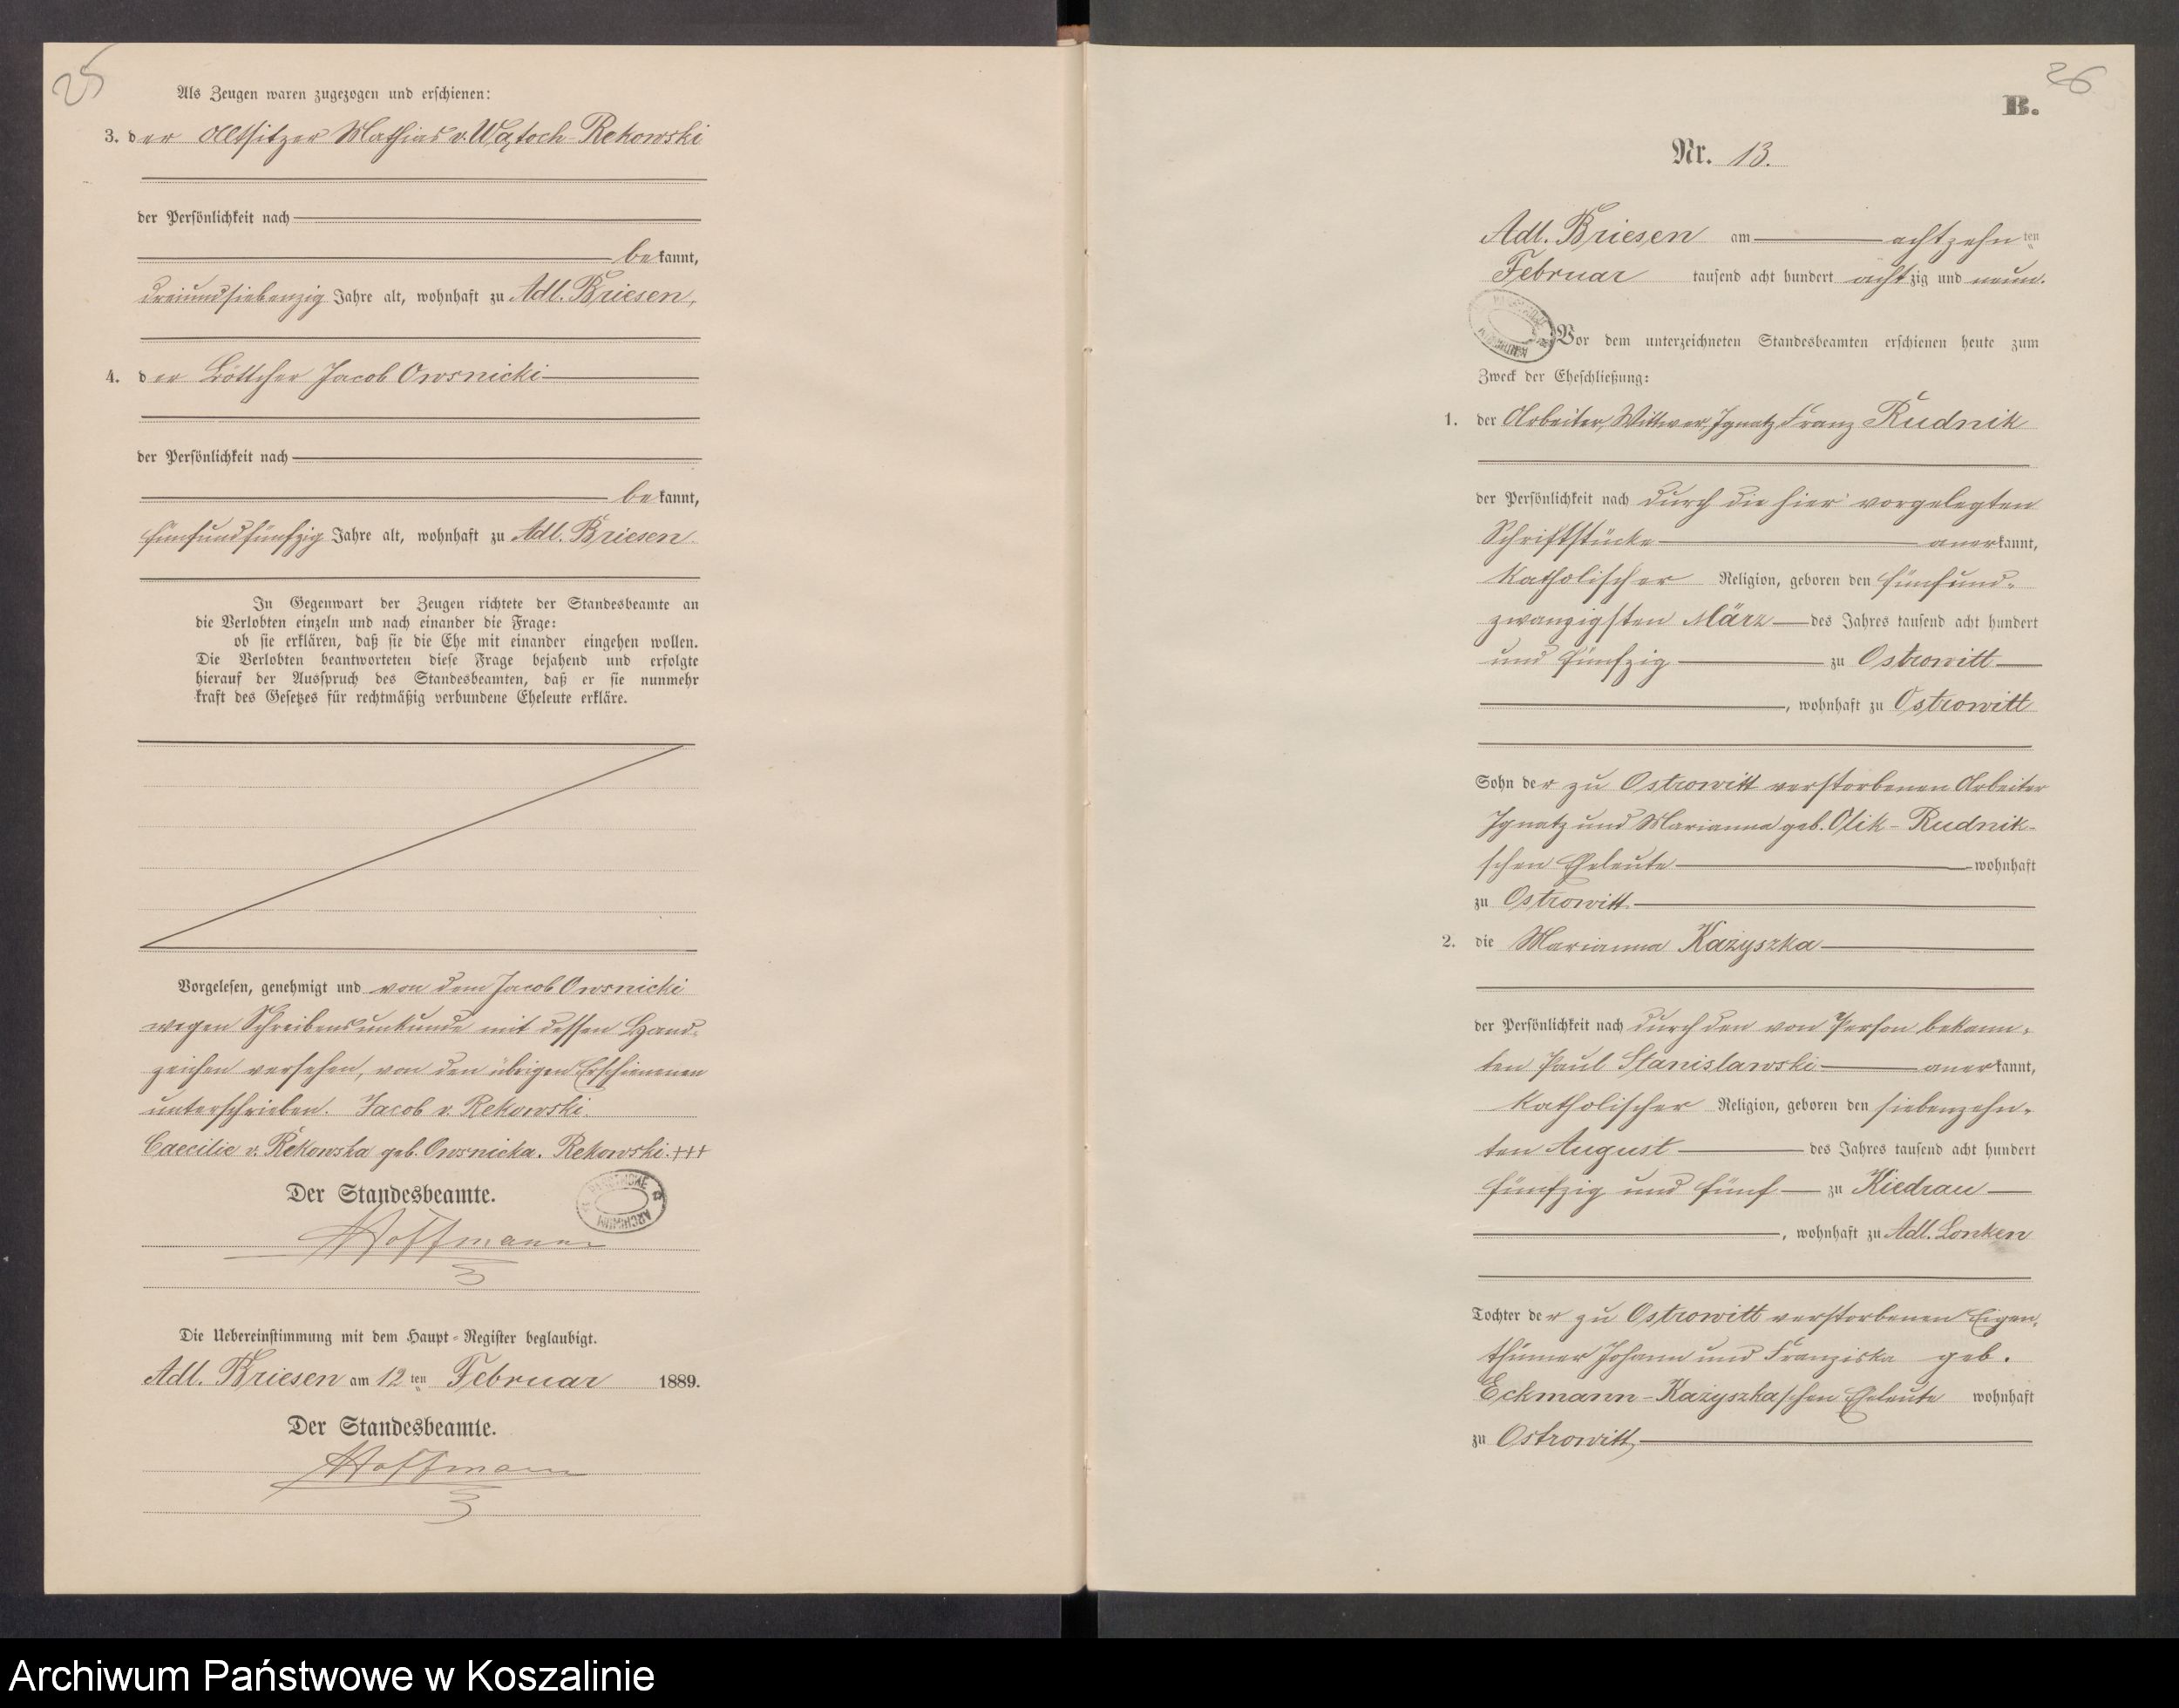 25
Als Zeugen waren zugezogen und erschienen:
3. der Altsitzer Mathias v. Wątoch-Rekowski
der Persönlichkeit nach
bekannt,
dreiundsiebenzig Jahre alt, wohnhaft zu Adl. Briesen,
4. der Böttcher Jacob Owsnicki
der Persönlichkeit nach
bekannt,
fünfundfünfzig Jahre alt, wohnhaft zu Adl. Briesen.
In Gegenwart der Zeugen richtete der Standesbeamte an
die Verlobten einzeln und nach einander die Frage:
ob sie erklären, daß sie die Ehe mit einander eingehen wollen.
Die Verlobten beantworteten diese Frage bejahend und erfolgte
hierauf der Ausspruch des Standesbeamten, daß er sie nunmehr
kraft des Gesetzes für rechtmäßig verbundene Eheleute erkläre.
Vorgelesen, genehmigt und von dem Jacob Owsnicki
wegen Schreibensunkunde mit dessen Hand-
zeichen versehen, von den übrigen Erschienenen
unterschrieben. Jacob v. Rekowski.
Caecilie v. Rekowska geb. Owsnicka. Rekowski. +++
Der Standesbeamte.
Hoffmann
Die Uebereinstimmung mit dem Haupt-Register beglaubigt.
Adl. Briesen am 12ten Februar 1889.
Der Standesbeamte.
Hoffmann
26
B.
Nr. 13.
Adl. Briesen am achtzehnten
Februar tausend acht hundert achtzig und neun.
Vor dem unterzeichneten Standesbeamten erschienen heute zum
Zweck der Eheschließung:
1. der Arbeiter, Wittwer, Ignatz Franz Rudnik
der Persönlichkeit nach durch die hier vorgelegten
Schriftstücke anerkannt,
katholischer Religion, geboren den fünfund-
zwanzigsten März des Jahres tausend acht hundert
und fünfzig zu Ostrowitt
, wohnhaft zu Ostrowitt
Sohn der zu Ostrowitt verstorbenen Arbeiter
Ignatz und Marianna geb. Olik-Rudnik-
schen Eheleute wohnhaft
zu Ostrowitt
2. die Marianna Każyszka
der Persönlichkeit nach durch den von Person bekann-
ten Paul Stanislawski anerkannt,
katholischer Religion, geboren den siebenzehn-
ten August des Jahres tausend acht hundert
fünfzig und fünf zu Kiedrau
, wohnhaft zu Adl. Lonken
Tochter der zu Ostrowitt verstorbenen Eigen-
thümer Johann und Franziska geb.
Eckmann-Każyszkaschen Eheleute wohnhaft
zu Ostrowitt,
Archiwum Państwowe w Koszalinie